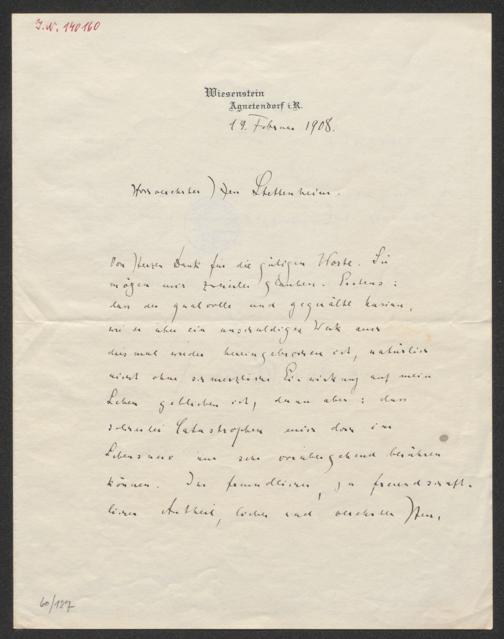 J.N. 140160
Wiesenstein
Agnetendorf i.R.
19. Februar 1908.
Hochverehrter Herr Stettenheim.
Von Herzen Dank für die gütigen Worte. Sie
mögen mir zweierlei glauben. Erstens:
dass der qualvolle und gequälte
wie er über ein unschuldiges Werk auch
dies mal wieder hereingebrochen ist, natürlich
nicht ohne schmerzliche Einwirkung auf mein
Leben geblieben ist, dann aber: dass
solcherlei Catastrophen mich doch im
Lebensnerv nur sehr vorübergehend berühren
können. Ihr freundlicher, ja freundschaft-
licher Antheil, lieber und verehrter Herr,
60/127